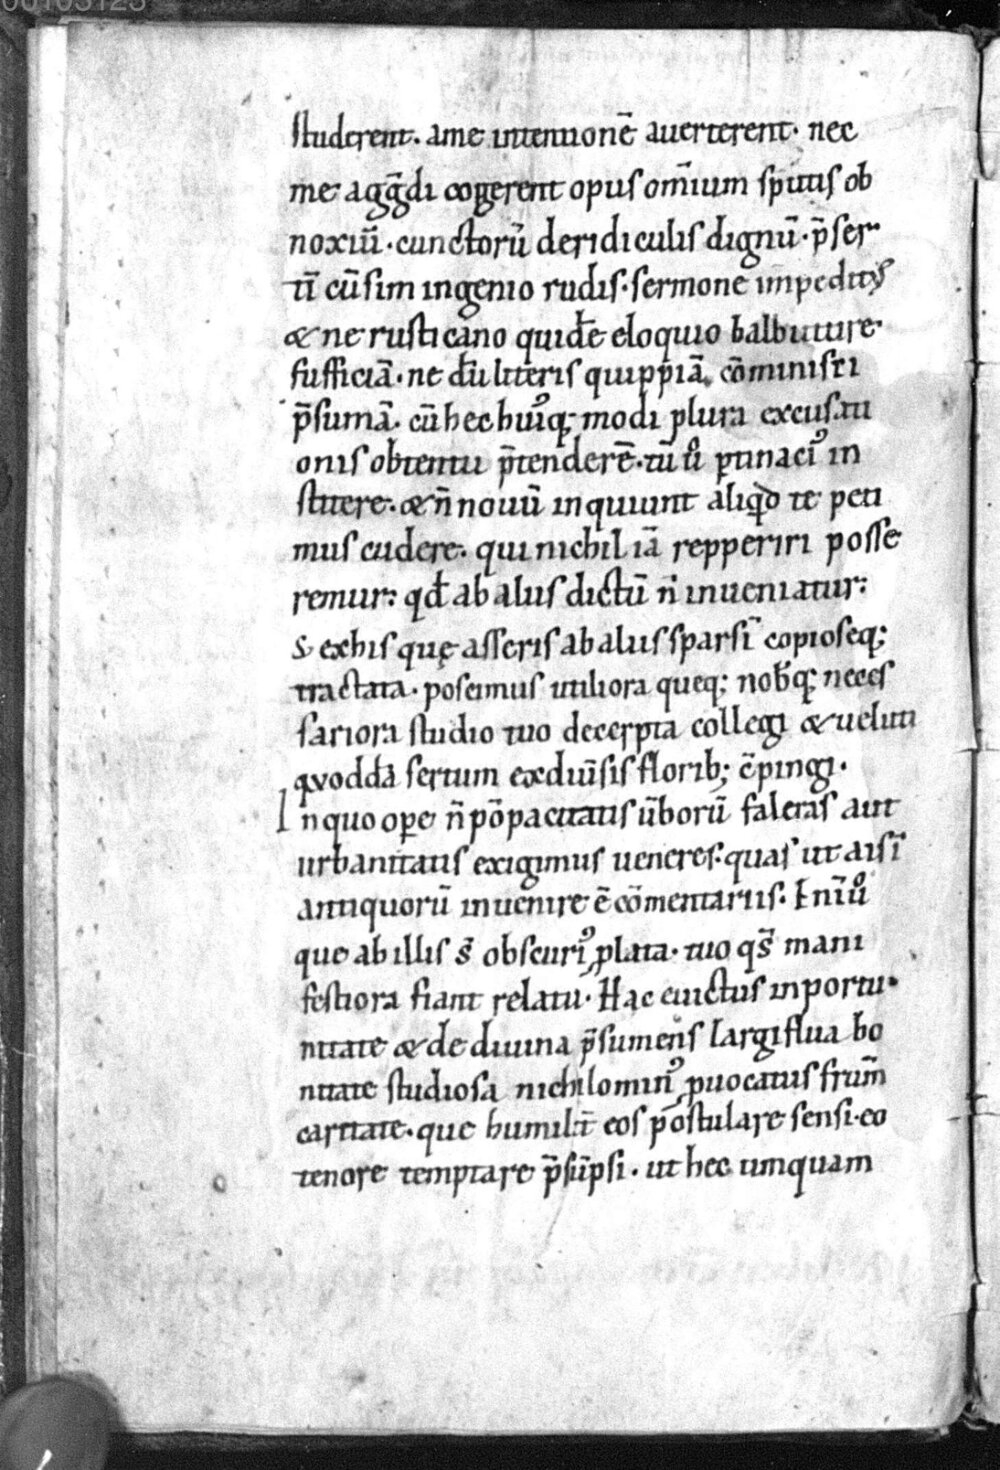 studerent. ame intentionē auerterent· nec
me agg̃di cogerent opus om̃ium sputis ob
noxiū·cunctorū deridiculis dignū·p̄ser
tī cū sim ingenio rudis·sermone impeditꝰ
& ne rusticano quidē eloquio balbutire
sufficiā·ne dū litteris quippiā cōminisci
p̄sumā. cū hec huiꝰq; modi plura excusati
onis obtentu p̄tenderē·tū uͦ ptinaciꝰ in
stitere·& n̄ nouū inquiunt aliqd te peti
mus cudere. qui nichil iā repperiri posse
remur: qđ ab aliis dictū n̄ inueniatur:
S; exhis quę asseris ab aliis sparsī copioseq;
tractata·poscimus utiliora queq; nob̄q; neces
sariora studio tuo decerpta collegi & ueluti
quoddā sertum exdiuīsis florib; cōpingi·
In quo ope n̄ pōpacitatis ūborū faleras aut
urbanitatis exigimus ueneres·quas ut aisī
antiquorū inuenire ē cōmentariis. Enīuͦ
que ab illis s̄ obscuriꝰ plata·tuo qs̄ mani
festiora fiant relatu·Hac euictus inportu
nitate & de diuina p̄sumens largiflua bo
nitate studiosa nichilominꝰ puocatus frūm
caritate·que humilit̄ eos postulare sensi·eo
tenore temptare p̄sūpsi·ut hec umquam